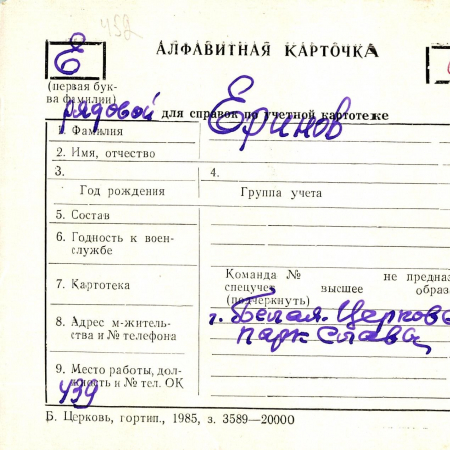 432
АЛФАВИТНАЯ КАРТОЧКА
Е
(первая бук-
ва фамилии)
рядовой для справок по учетной картотеке
1. Фамилия Еринов
2. Имя, отчество
3. 4.
Год рождения Группа учета
5. Состав
6. Годность к воен-
службе
7. Картотека
Команда № не предназ
спецучет высшее образ
(подчеркнуть)
8. Адрес м-житель-
ства и № телефона
г. Белая-Церковь
парк Слава
9. Место работы, дол-
жность и № тел. ОК
439
Б. Церковь, гортип., 1985, з. 3589—20000